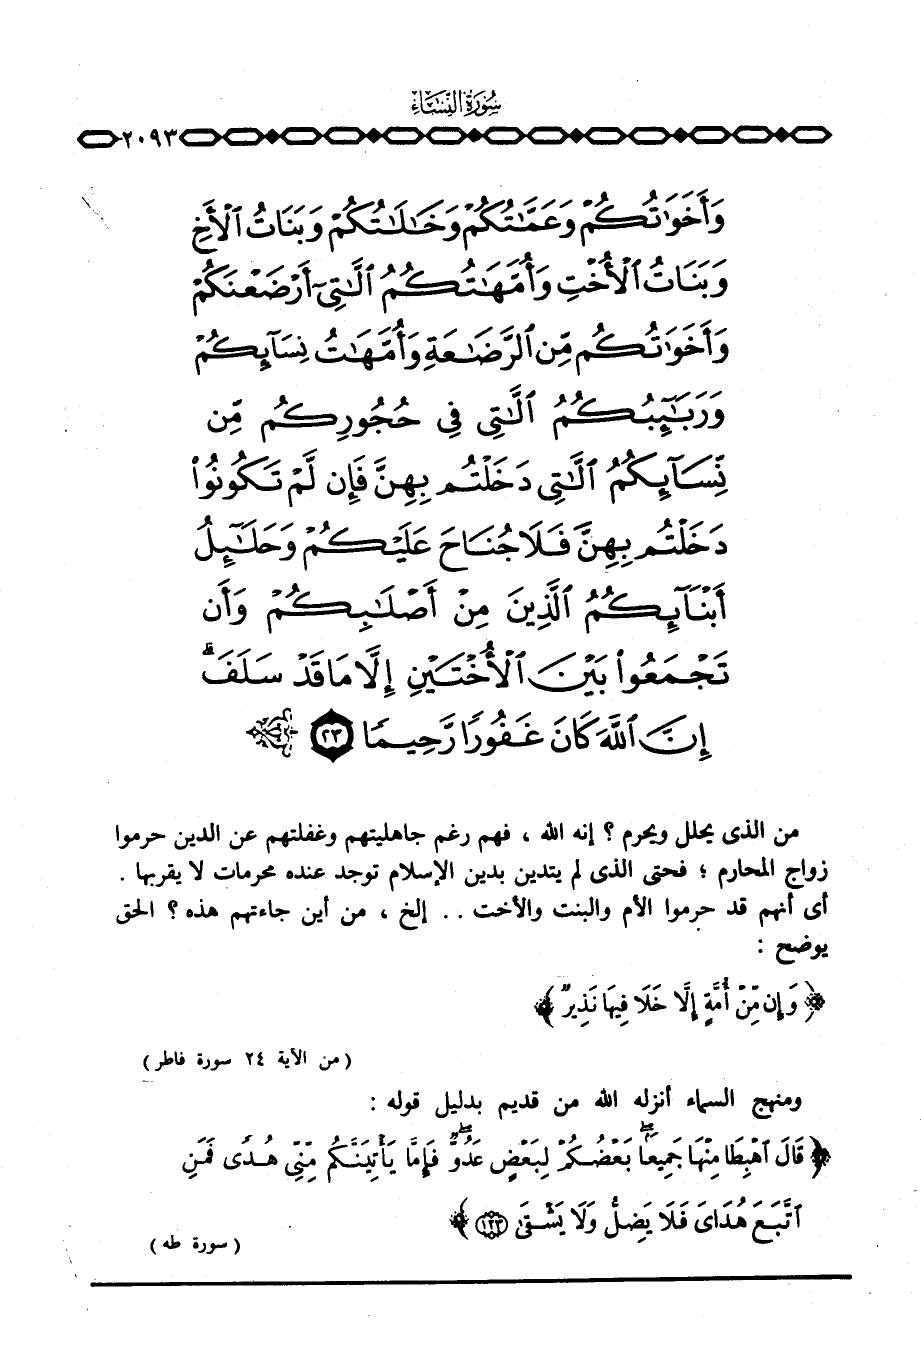 سُورَةُ النِّسَاءِ
٢٠٩٣
وَأَخَوَٰتُكُمْ وَعَمَّٰتُكُمْ وَخَٰلَٰتُكُمْ وَبَنَاتُ ٱلْأَخِ
وَبَنَاتُ ٱلْأُخْتِ وَأُمَّهَٰتُكُمُ ٱلَّٰتِىٓ أَرْضَعْنَكُمْ
وَأَخَوَٰتُكُم مِّنَ ٱلرَّضَٰعَةِ وَأُمَّهَٰتُ نِسَآئِكُمْ
وَرَبَٰٓئِبُكُمُ ٱلَّٰتِى فِى حُجُورِكُم مِّن
نِّسَآئِكُمُ ٱلَّٰتِى دَخَلْتُم بِهِنَّ فَإِن لَّمْ تَكُونُوا۟
دَخَلْتُم بِهِنَّ فَلَا جُنَاحَ عَلَيْكُمْ وَحَلَٰٓئِلُ
أَبْنَآئِكُمُ ٱلَّذِينَ مِنْ أَصْلَٰبِكُمْ وَأَن
تَجْمَعُوا۟ بَيْنَ ٱلْأُخْتَيْنِ إِلَّا مَا قَدْ سَلَفَ ۗ
إِنَّ ٱللَّهَ كَانَ غَفُورًا رَّحِيمًا ٢٣
من الذى يحلل ويحرم ؟ إنه الله ، فهم رغم جاهليتهم وغفلتهم عن الدين حرموا
زواج المحارم ؛ فحتى الذى لم يتدين بدين الإسلام توجد عنده محرمات لا يقربها .
أى أنهم قد حرموا الأم والبنت والأخت .. إلخ ، من أين جاءتهم هذه ؟ الحق
يوضح :
﴿ وَإِن مِّنْ أُمَّةٍ إِلَّا خَلَا فِيهَا نَذِيرٌ ﴾
( من الآية ٢٤ سورة فاطر )
ومنهج السماء أنزله الله من قديم بدليل قوله :
﴿ قَالَ ٱهْبِطَا مِنْهَا جَمِيعًۢا ۖ بَعْضُكُمْ لِبَعْضٍ عَدُوٌّ ۖ فَإِمَّا يَأْتِيَنَّكُم مِّنِّى هُدًى فَمَنِ
ٱتَّبَعَ هُدَاىَ فَلَا يَضِلُّ وَلَا يَشْقَىٰ ١٢٣ ﴾
( سورة طه )